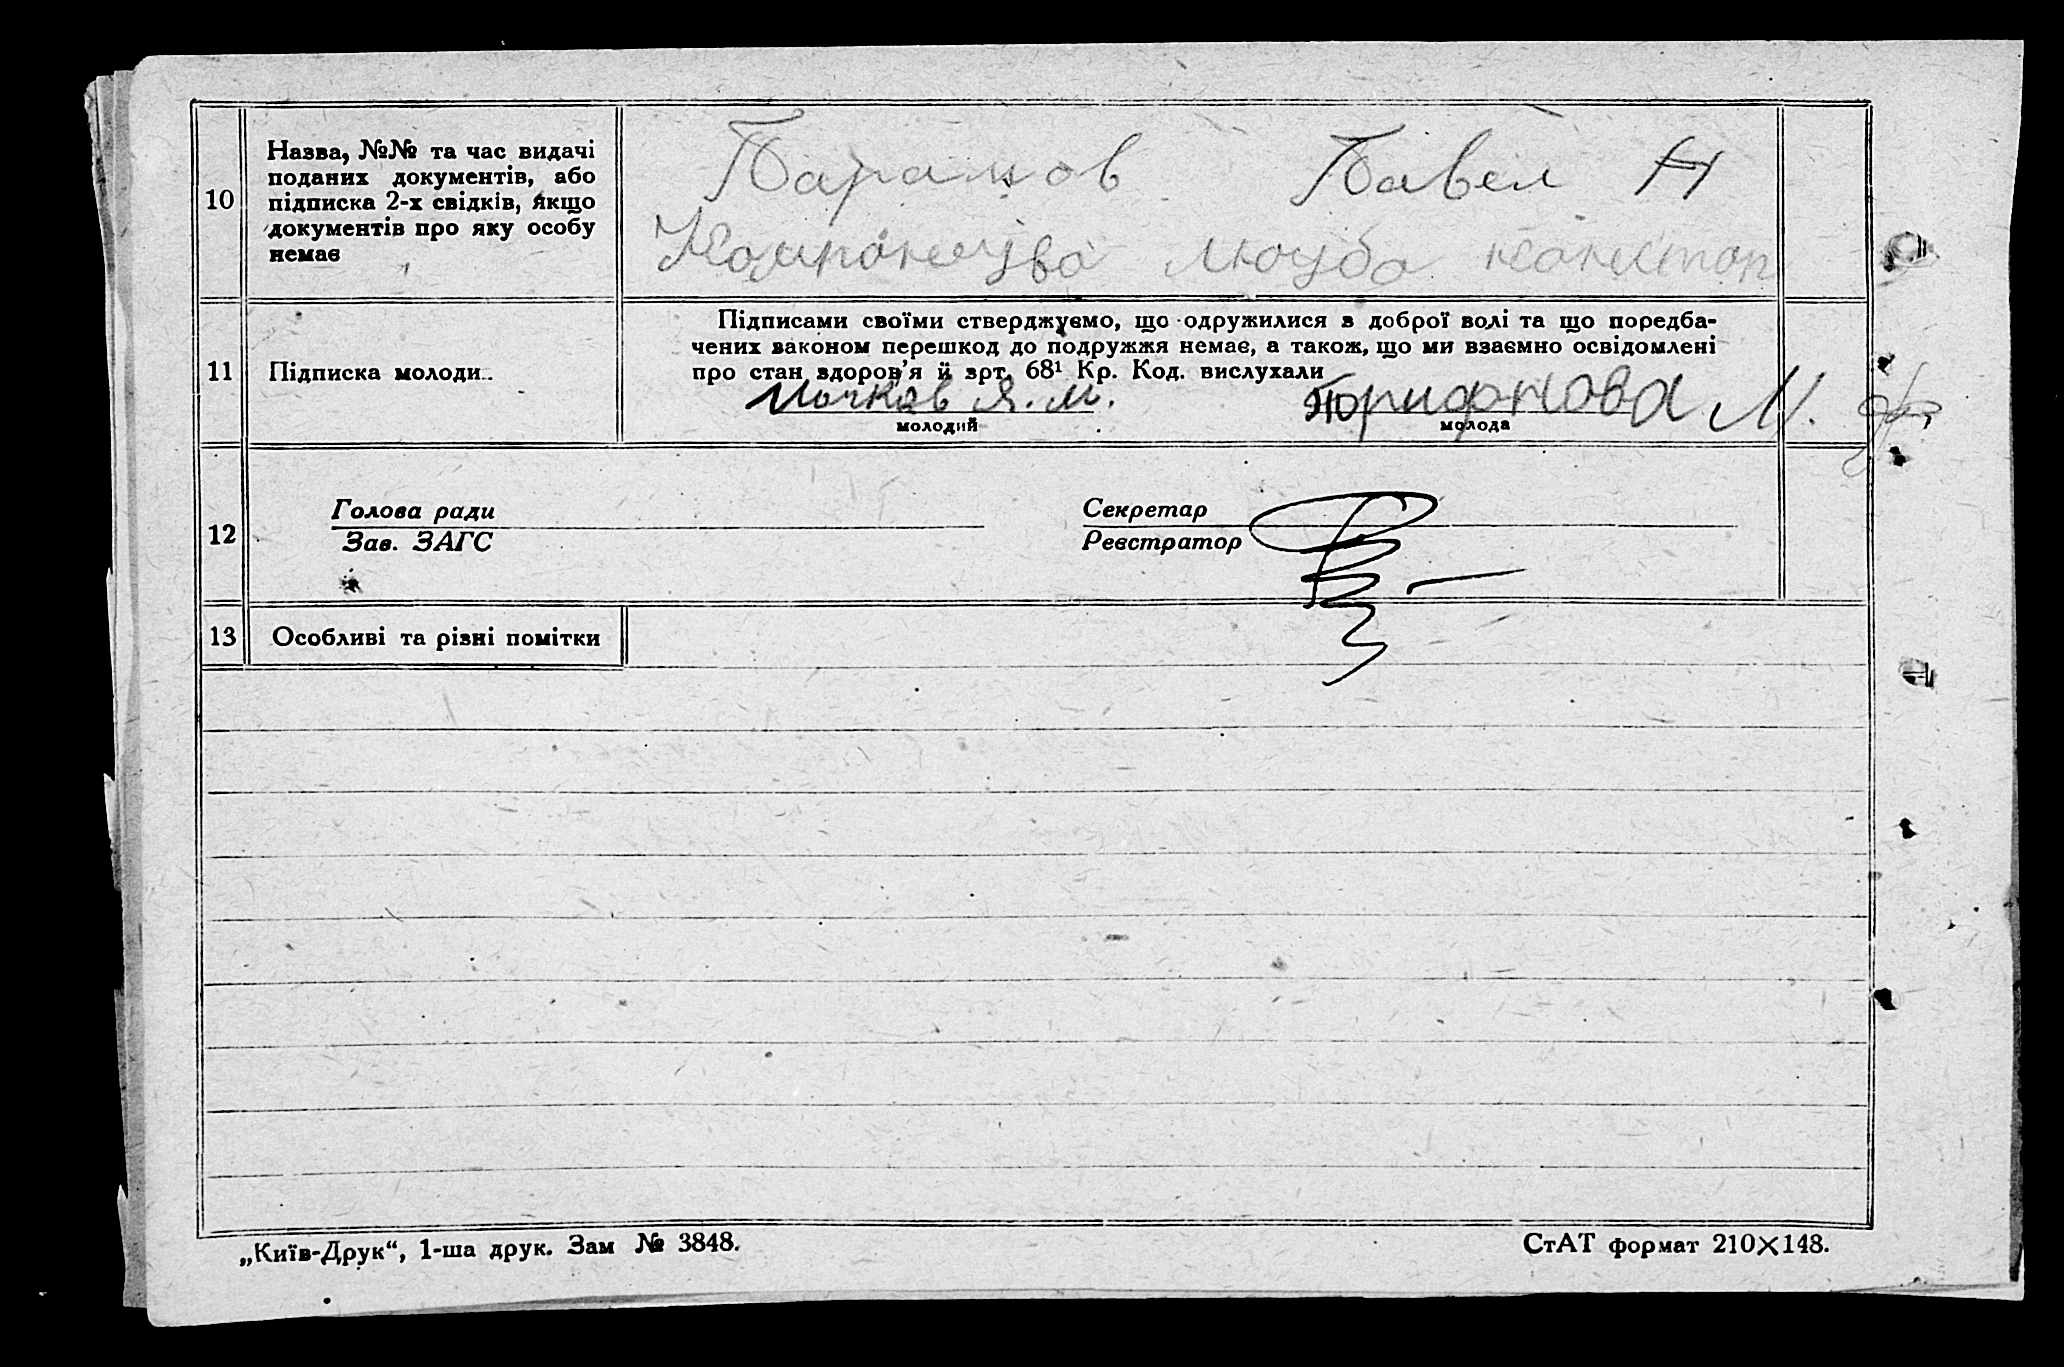 10
Назва, №№ та час видачі
поданих документів, або
підписка 2-х свідків, якщо
документів про яку особу
немає
Парамов Павел Н
11
Підписка молоди..
Підписами своїми стверджуємо, що одружилися з доброї волі та що поредба-
чених законом перешкод до подружжя немає, а також, що ми взаємно освідомлені
про стан здоров'я й зрт. 68¹ Кр. Код. вислухали
Мочков Я. М.
молодий
М. Ф.
молода
12
Голова ради
Зав. ЗАГС
Секретар
Реєстратор
13
Особливі та різні помітки
„Київ-Друк“, 1-ша друк. Зам № 3848.
СтАТ формат 210×148.